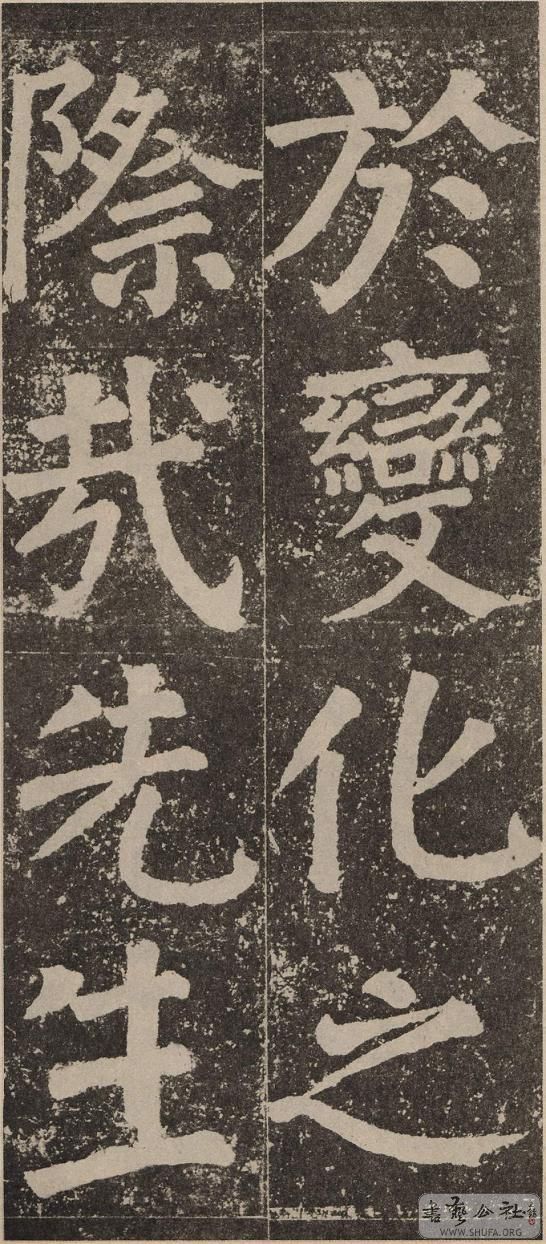 於變化之
際哉先生
書藝公社
WWW.SHUFA.ORG